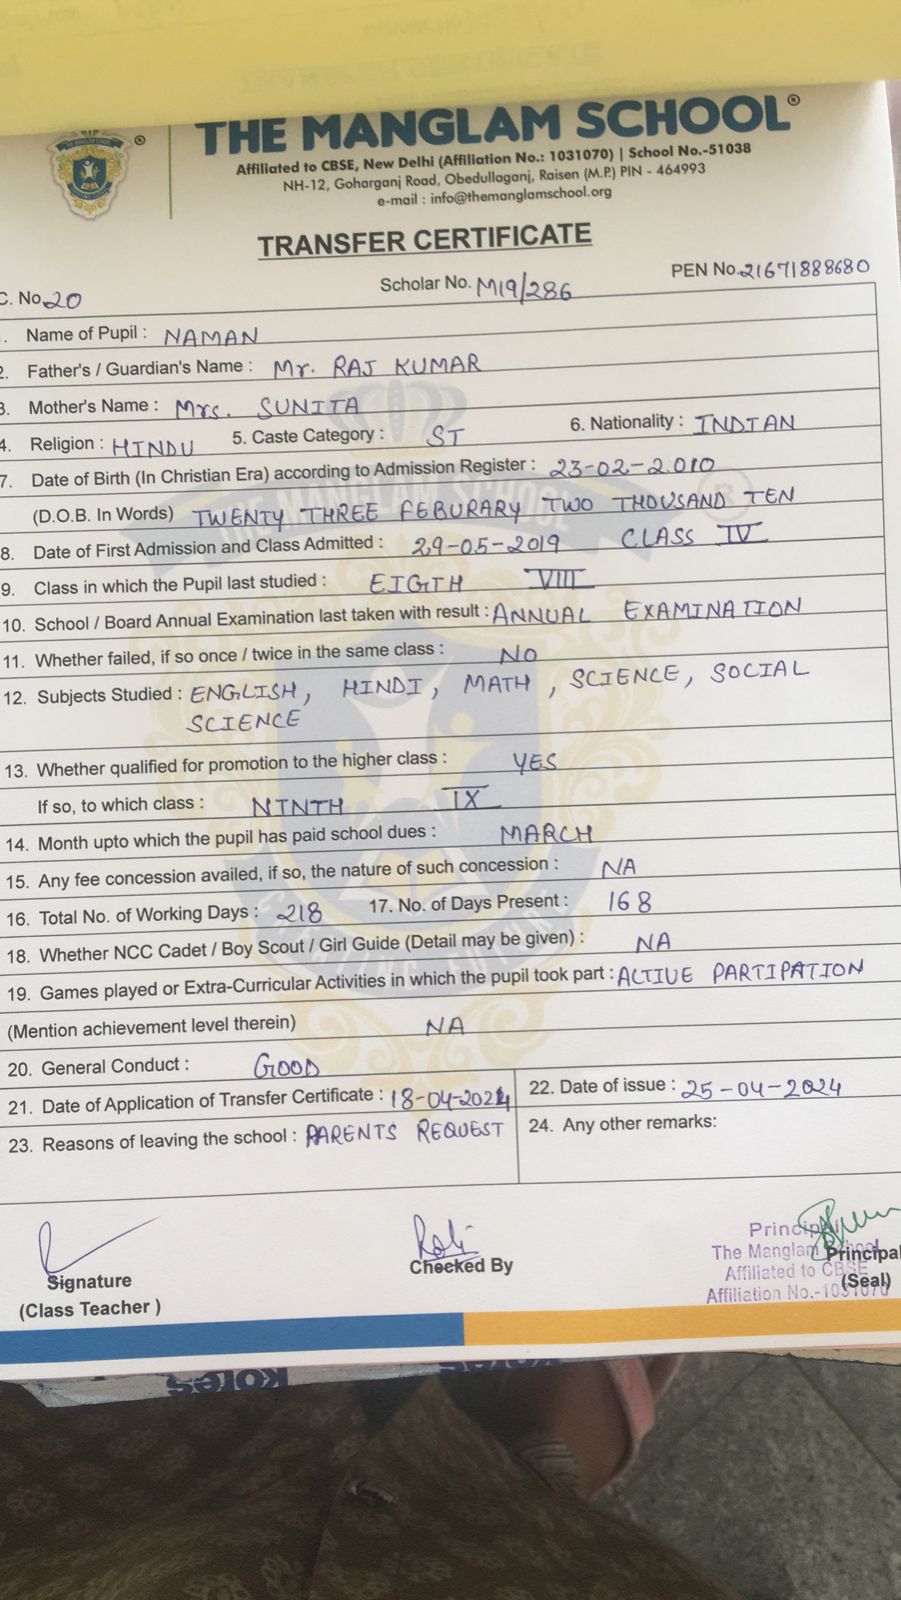 THE MANGLAM SCHOOL®
Affiliated to CBSE, New Delhi (Affiliation No.: 1031070) | School No.-51038
NH-12, Goharganj Road, Obedullaganj, Raisen (M.P.) PIN - 464993
e-mail : info@themanglamschool.org
TRANSFER CERTIFICATE
C. No 20 Scholar No. M19/286 PEN No. 21671888680
. Name of Pupil : NAMAN
2. Father's / Guardian's Name : Mr. RAJ KUMAR
3. Mother's Name : Mrs. SUNITA
4. Religion : HINDU 5. Caste Category : ST 6. Nationality : INDIAN
7. Date of Birth (In Christian Era) according to Admission Register : 23-02-2010
(D.O.B. In Words) TWENTY THREE FEBURARY TWO THOUSAND TEN
8. Date of First Admission and Class Admitted : 29-05-2019 CLASS IV
9. Class in which the Pupil last studied : EIGTH VIII
10. School / Board Annual Examination last taken with result : ANNUAL EXAMINATION
11. Whether failed, if so once / twice in the same class : NO
12. Subjects Studied : ENGLISH, HINDI, MATH, SCIENCE, SOCIAL
SCIENCE
13. Whether qualified for promotion to the higher class : YES
If so, to which class : NINTH IX
14. Month upto which the pupil has paid school dues : MARCH
15. Any fee concession availed, if so, the nature of such concession : NA
16. Total No. of Working Days : 218 17. No. of Days Present : 168
18. Whether NCC Cadet / Boy Scout / Girl Guide (Detail may be given) : NA
19. Games played or Extra-Curricular Activities in which the pupil took part : ACTIVE PARTIPATION
(Mention achievement level therein) NA
20. General Conduct : GOOD
21. Date of Application of Transfer Certificate : 18-04-2024 22. Date of issue : 25-04-2024
23. Reasons of leaving the school : PARENTS REQUEST 24. Any other remarks:
Signature
(Class Teacher )
Checked By
Principal
The Manglam School
Affiliated to CBSE
Affiliation No.-1031070
Principal
(Seal)